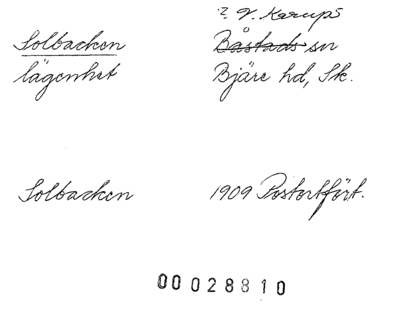 ? V. Karups
Solbacken Båstads sn
lägenhet Bjäre hd, Sk.
Solbacken 1909 Postortfört.
00028810